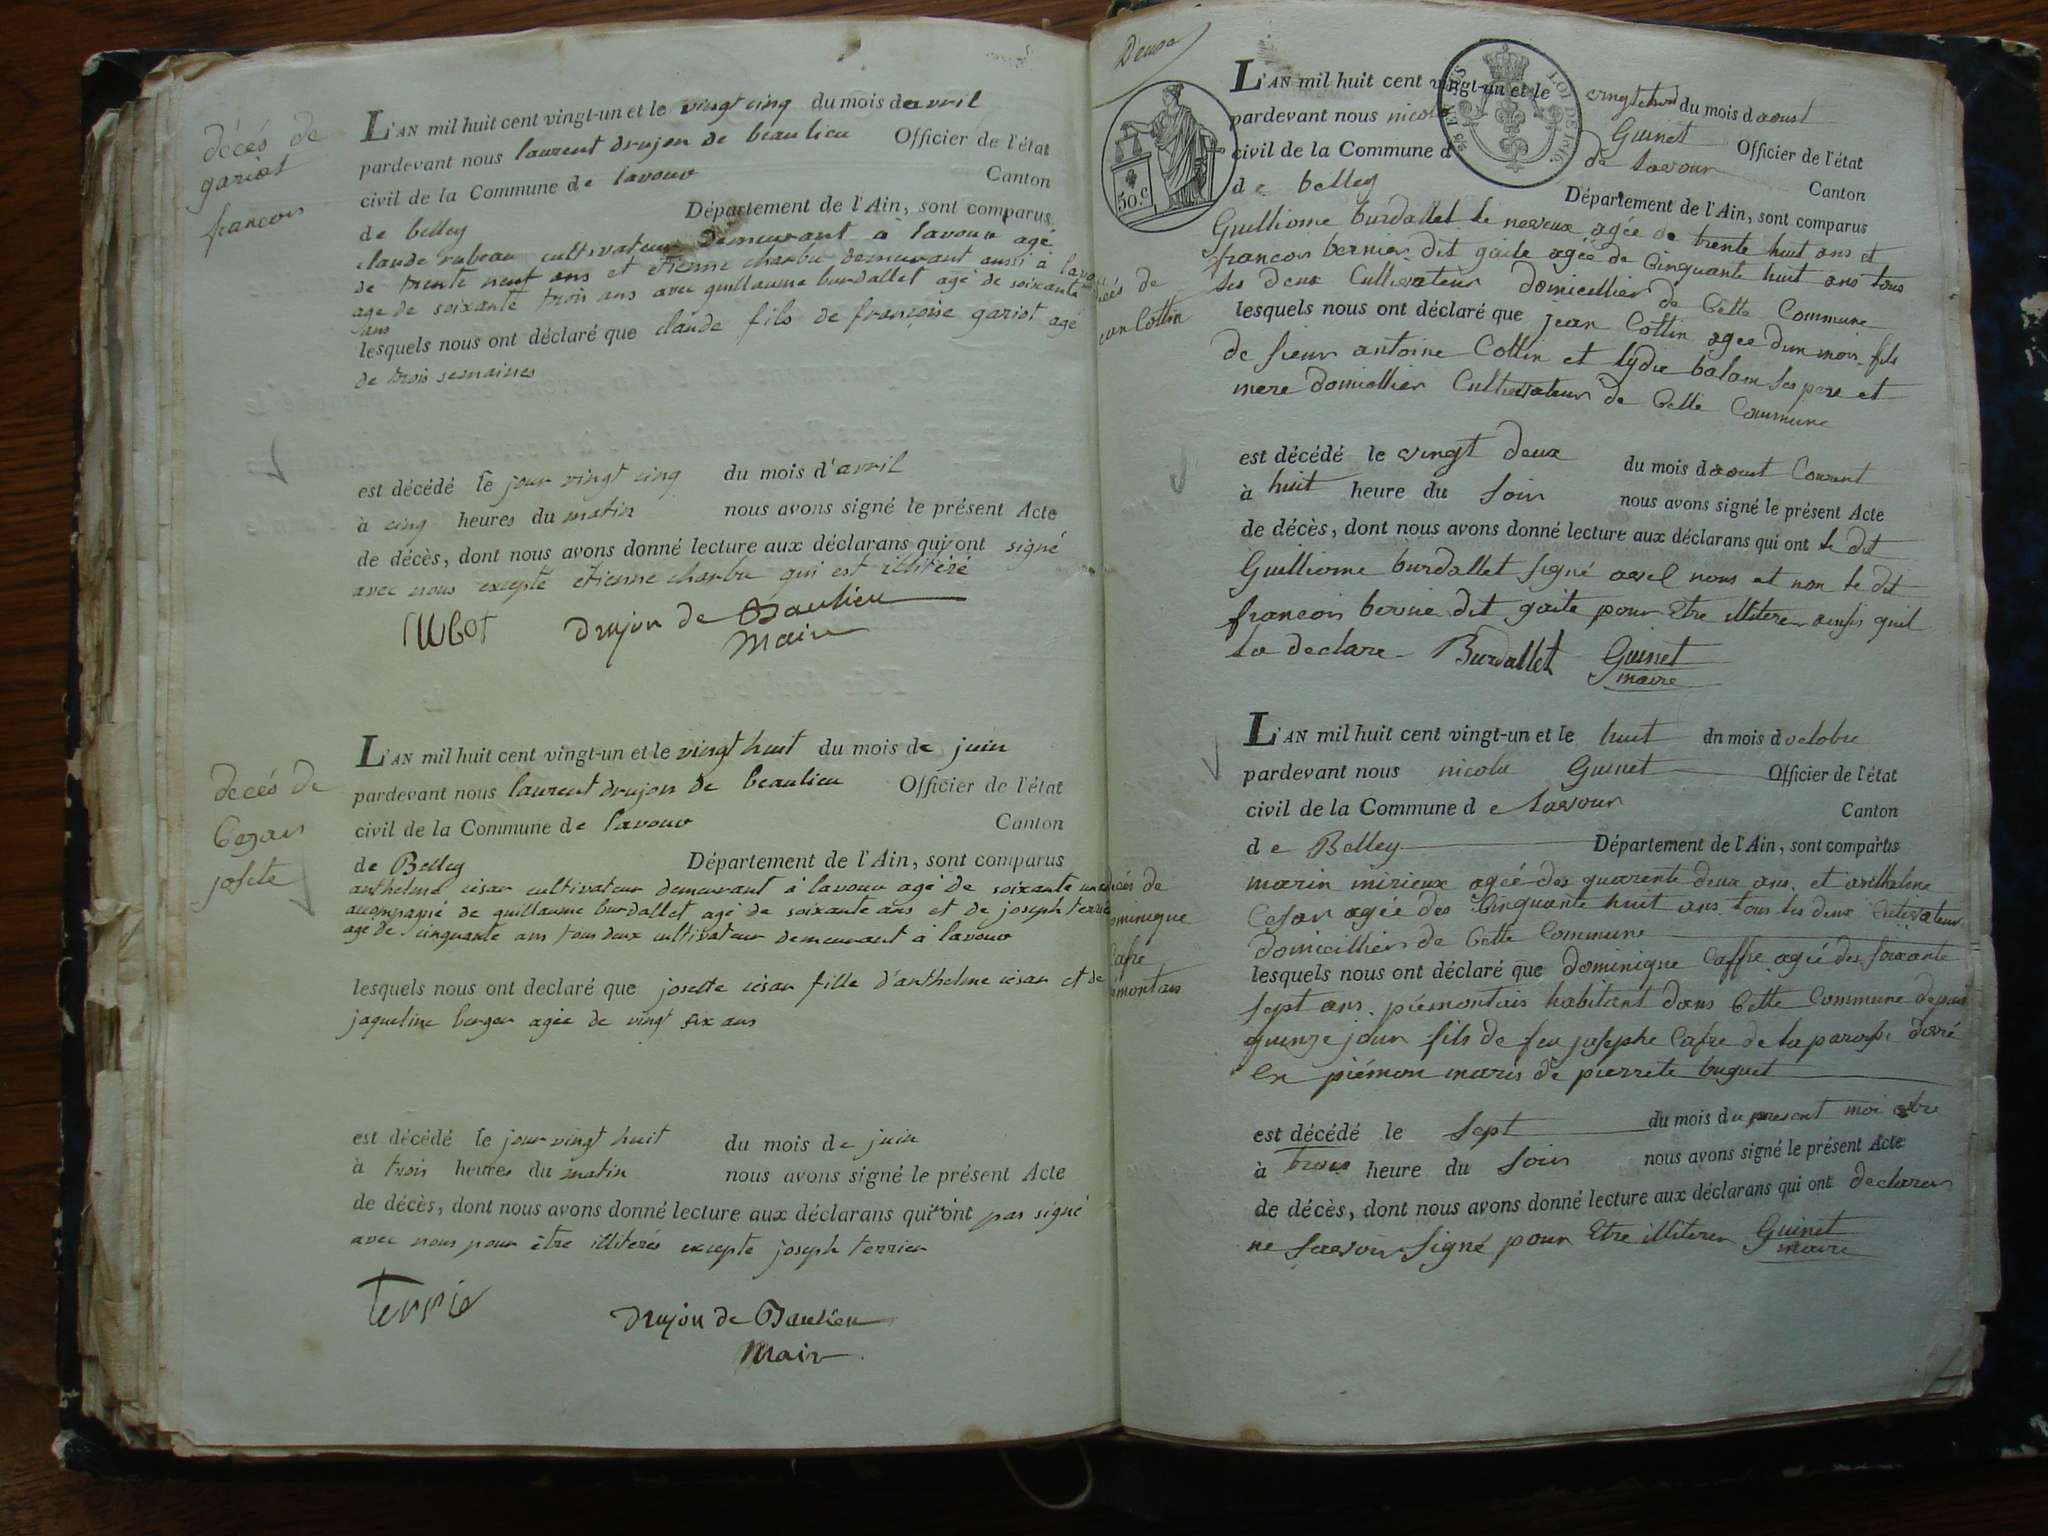 décés de
gariot
francois
L'AN mil huit cent vingt-un et le vingt cinq du mois d avril
pardevant nous laurent drujon de beaulieu Officier de l'état
civil de la Commune de lavour Canton
de belley Département de l'Ain, sont comparus
claude rubeau cultivateur demeurant a lavour agé
de trente neuf ans et etienne charbu demeurant aussi à
age de soixante trois ans avec guillaume burdallet agé de soixante
ans
lesquels nous ont déclaré que claude fils de françoise gariot agé
de trois semaines
est décédé le jour vingt cinq du mois d'avril
à cinq heures du matin nous avons signé le présent Acte
de décès, dont nous avons donné lecture aux déclarans qui ont signé
avec nous excepté etienne charbu qui est illitéré
drujon de Baulieu
Maire
decés de
Cezar
josete
L'AN mil huit cent vingt-un et le vingt huit du mois de juin
pardevant nous laurent drujon de beaulieu Officier de l'état
civil de la Commune de lavour Canton
de Belley Département de l'Ain, sont comparus
anthelme césar cultivateur demeurant à lavour agé de soixante
accompagné de guillaume burdallet agé de soixante ans et de joseph terrier
agé de cinquante ans tous deux cultivateur demeurant à lavour
lesquels nous ont declaré que josette césar fille d'anthelme césar et de
jaqueline berger agée de vingt six ans
est décédé le jour vingt huit du mois de juin
à trois heures du matin nous avons signé le présent Acte
de décès, dont nous avons donné lecture aux déclarans qui n'ont pas signé
avec nous pour être illiterés excepté joseph terrier
Terrier
drujon de Baulieu
Maire
Deuxe
50. C
LOI DE 1816.
L'AN mil huit cent vingt-un et le du mois d aoust
pardevant nous nicola Guinet Officier de l'état
civil de la Commune d de Lavour Canton
d e belley Département de l'Ain, sont comparus
Guilliome burdallet le neveux agée de trente huit ans et
francois bernier dit gaite agée de Cinquante huit ans tous
les deux Cultivateur domicillier de Cette Commune
lesquels nous ont déclaré que jean Cottin agée dun mois fils
de sieur antoine Cottin et lydie balam ses pere et
mere domicillier Cultivateur de Cette Commune
est décédé le vingt deux du mois d aoust Courant
à huit heure du Soir nous avons signé le présent Acte
de décès, dont nous avons donné lecture aux déclarans qui ont le dit
Guilliome burdallet signé avel nous et non le dit
francois bernié dit gaite pour Etre illiterer ainsis quil
la declare Burdallet Guinet
maire
L'AN mil huit cent vingt-un et le huit dn mois d octobre
pardevant nous nicola Guinet Officier de l'état
civil de la Commune d e Lavour Canton
d e Belley Département de l'Ain, sont comparus
marin mirieux agée des quarente deux ans et anthelme
Cesar agée des Cinquante huit ans tous les deux Cultivateur
domicillier de Cette Commune
lesquels nous ont déclaré que dominique Caffre agée des soixante
sept ans piémontais habitant dans Cette Commune depuis
quinze jour fils de feu josephe Cafre de la paroisse
En piémon maris de pierrete buguet
est décédé le Sept du mois du present moi
à trois heure du Soir nous avons signé le présent Acte
de décès, dont nous avons donné lecture aux déclarans qui ont declarer
ne savoir Signé pour Etre illiterer Guinet
maire